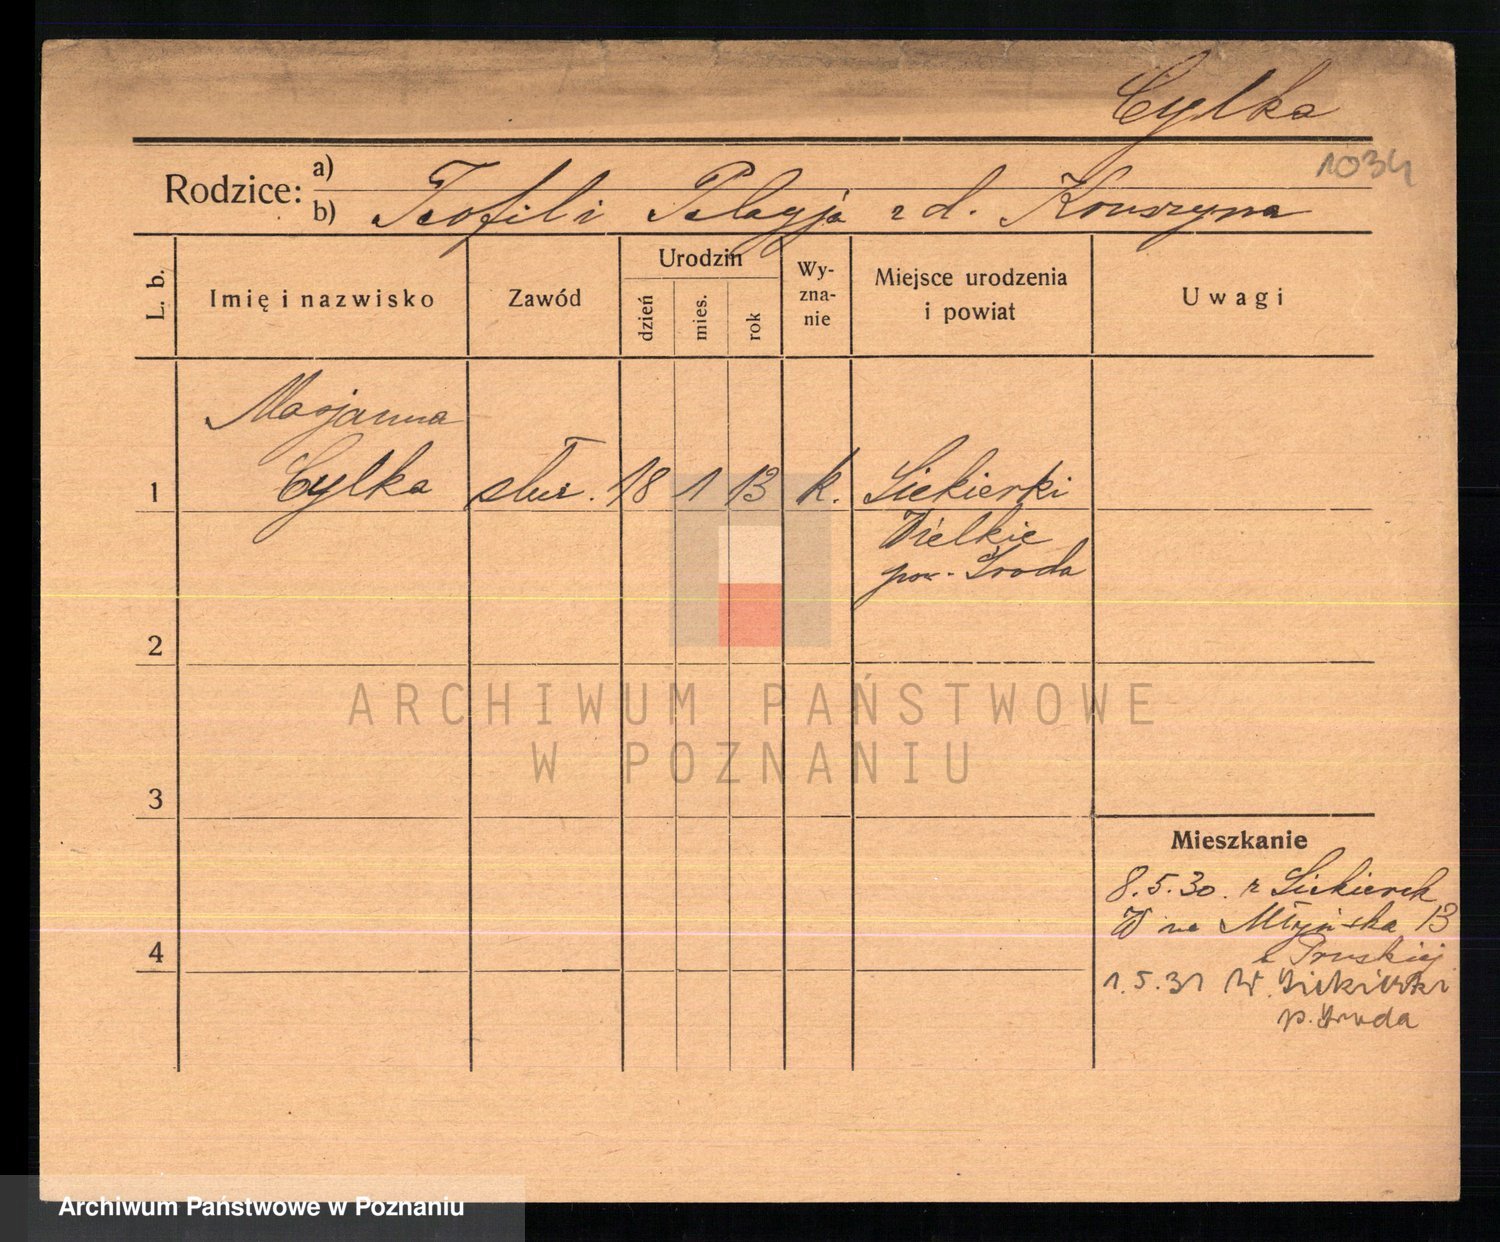 Cylka
1034
Rodzice: a)
b) Teofil i Pelagja z d. Konszyna
L. b.
Imię i nazwisko
Zawód
Urodzin
dzień
mies.
rok
Wy-
zna-
nie
Miejsce urodzenia
i powiat
Uwagi
Marjanna
1 Cylka służ. 18 1 13 k. Siekierki
Wielkie
pow. Środa
2
ARCHIWUM PAŃSTWOWE
W POZNANIU
3
Mieszkanie
8.5.30. z Siekierek
W na Młyńska 13
Pruskiej
4
1.5.31 W. Siekierki
p. Środa
Archiwum Państwowe w Poznaniu